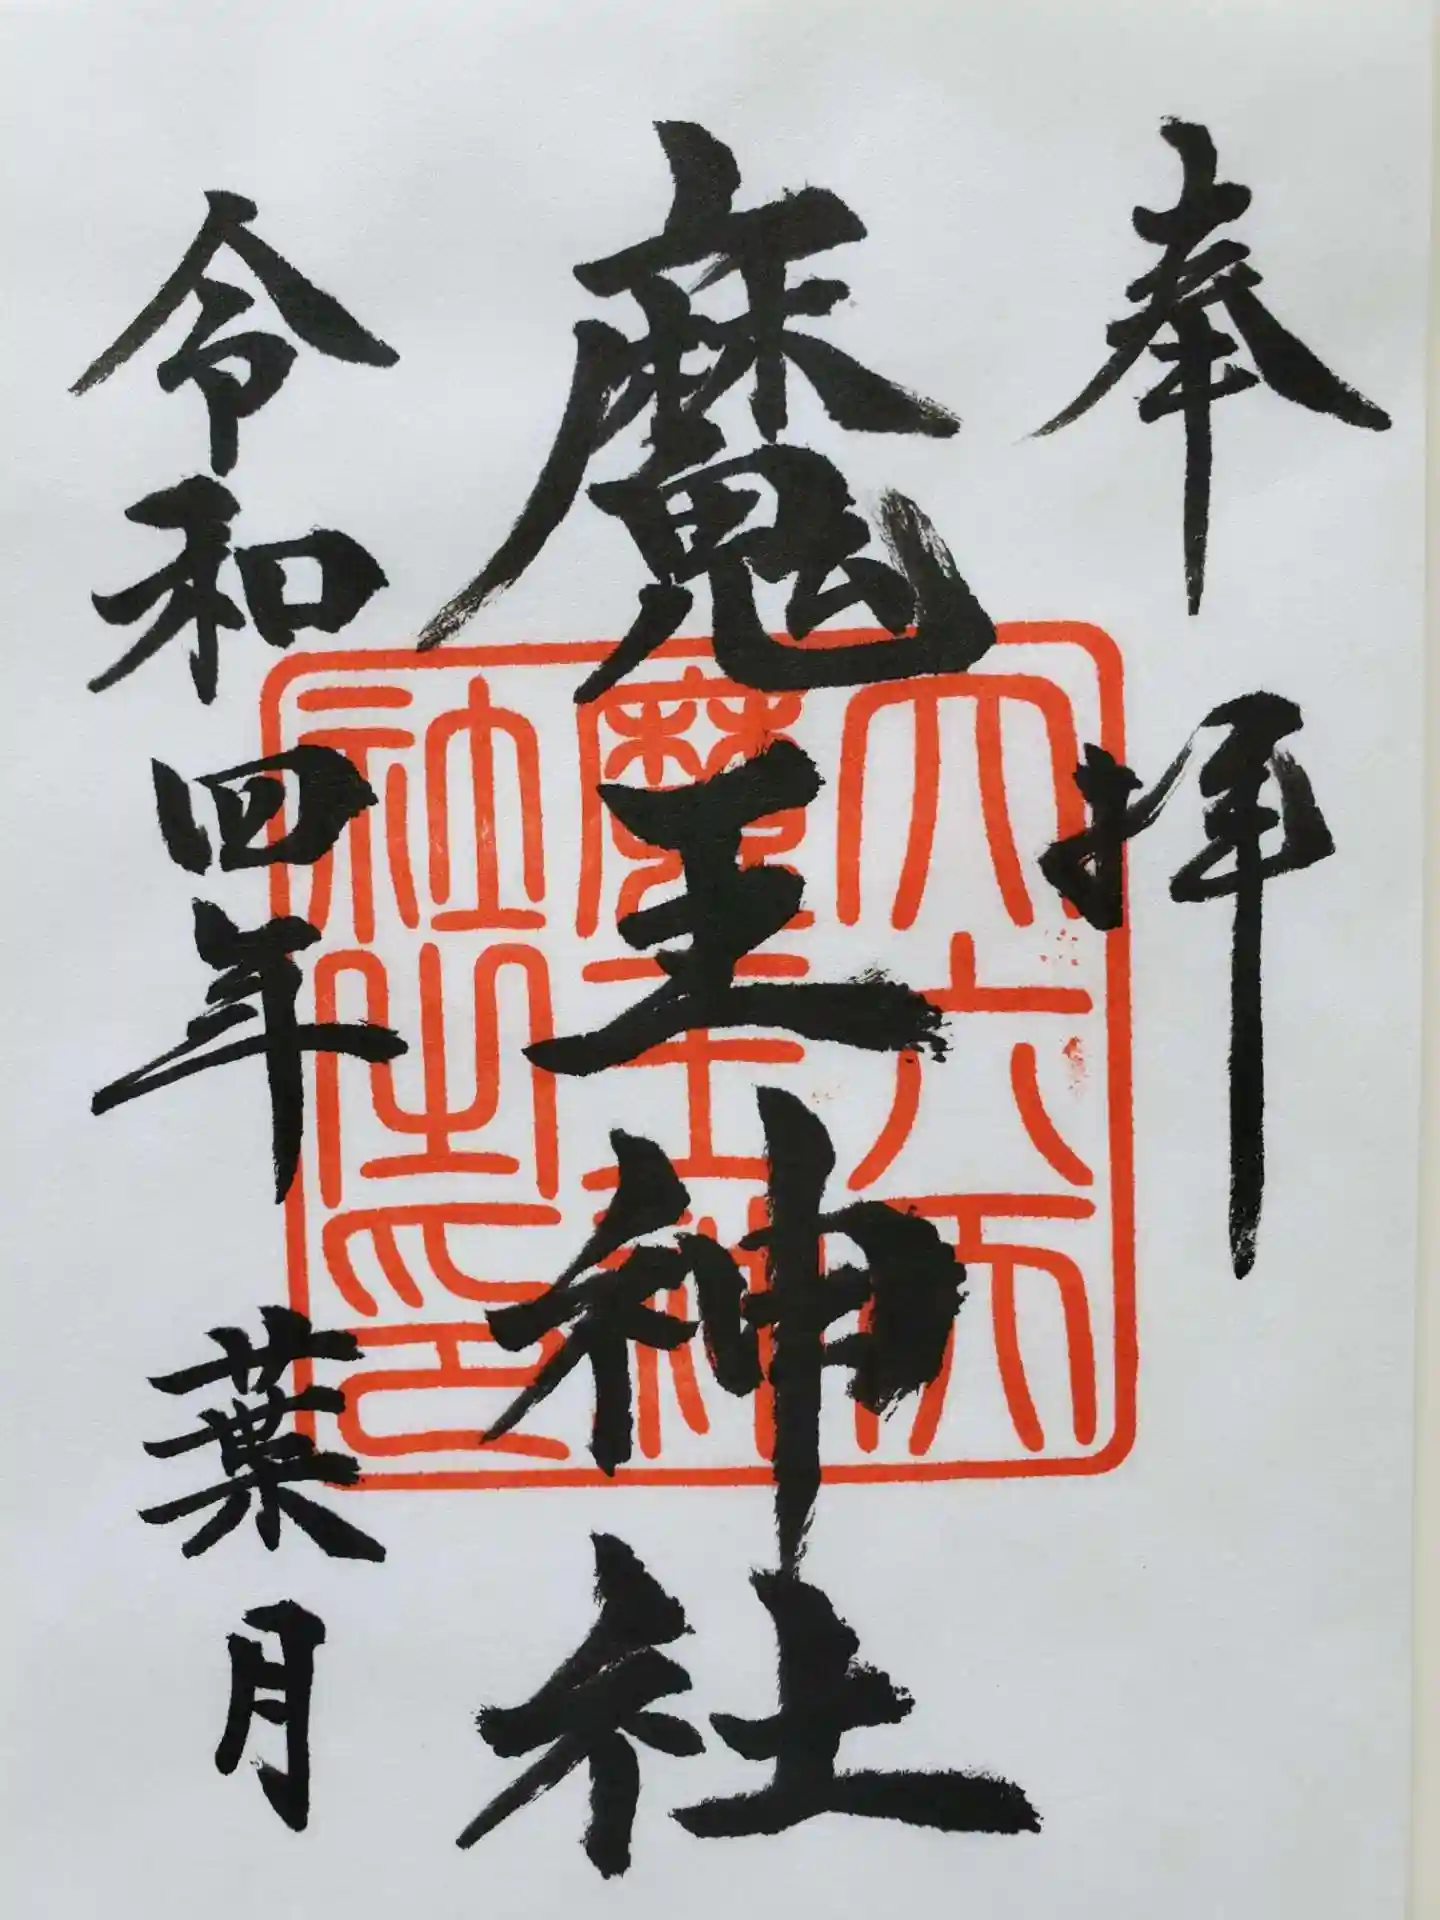 奉拝
魔王神社
令和四年 葉月
大六天
魔王神
社之印